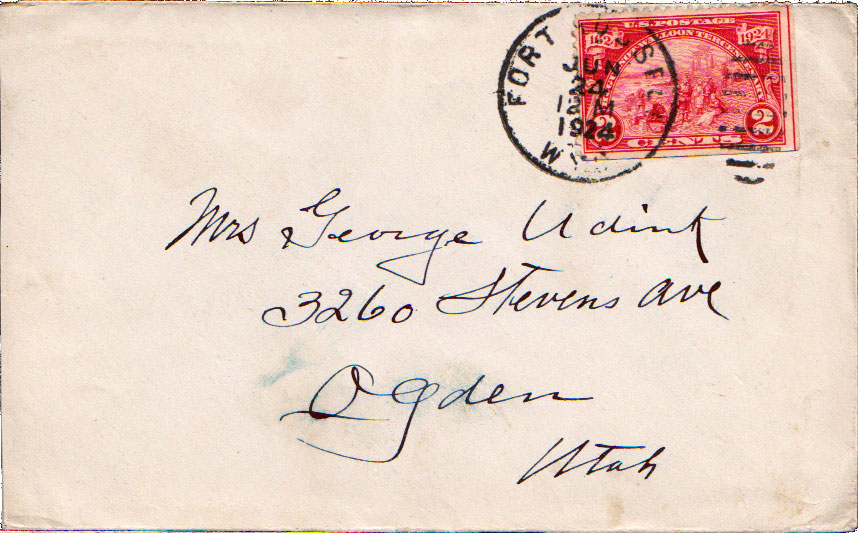 U.S. POSTAGE
1624 1924
HUGUENOT WALLOON TERCENTENARY
2 2
CENTS
FORT RUSSELL
JUN
24
12 M
1924
Mrs George Udink
3260 Stevens Ave
Ogden
Utah